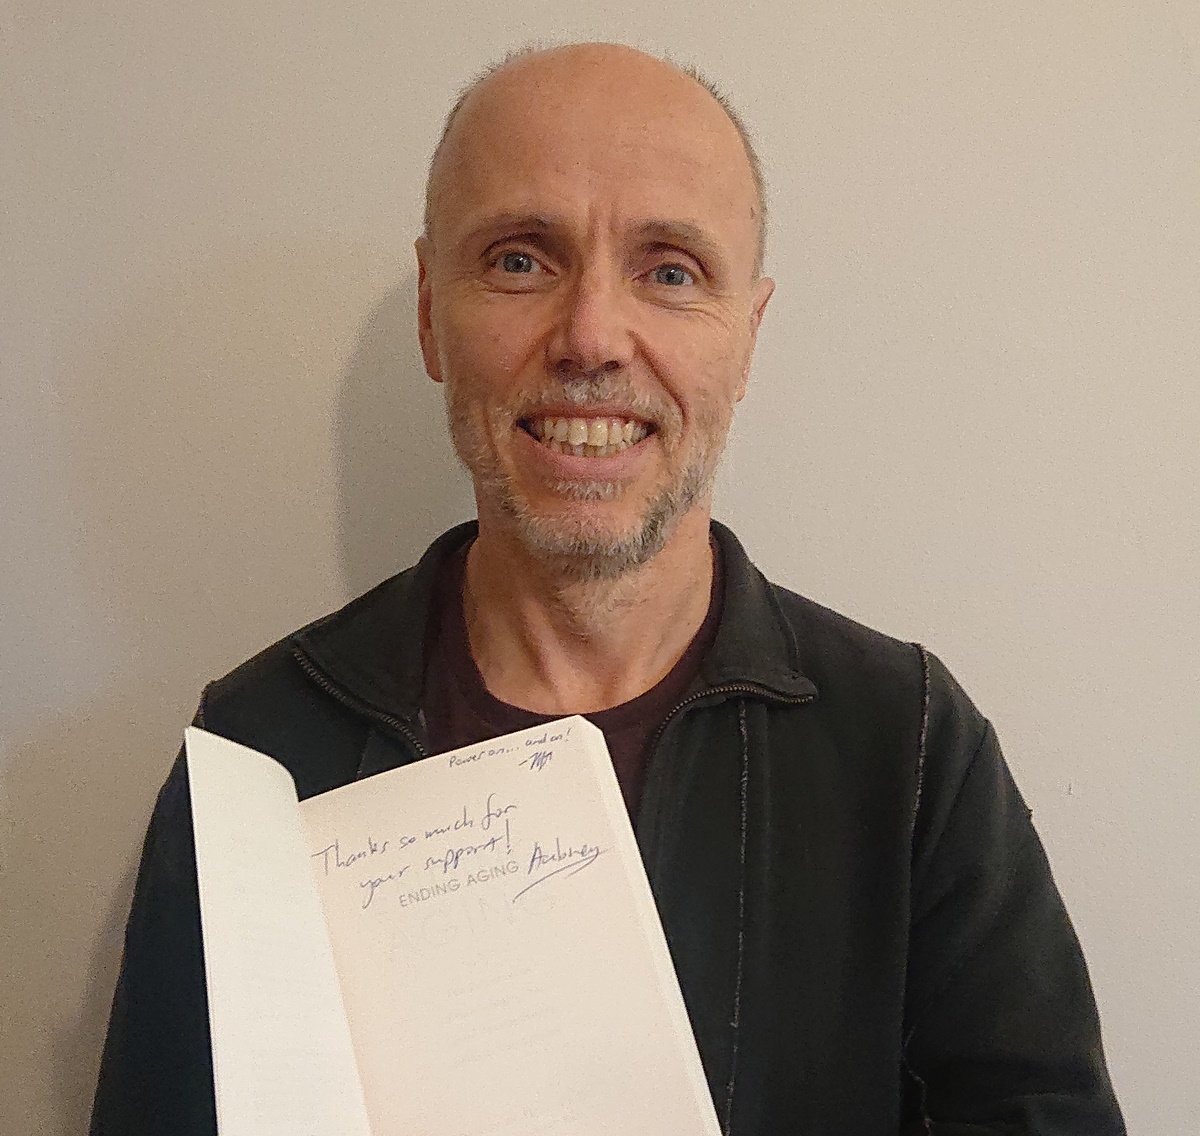 Power on... and on!
Thanks so much for
your support!
ENDING AGING Aubrey
AGING